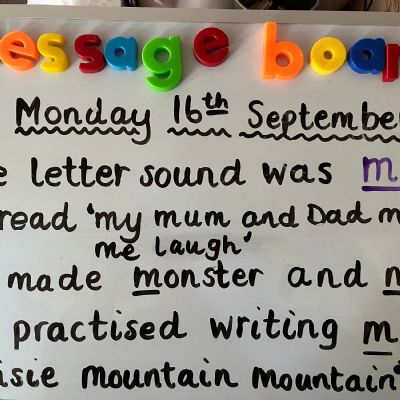 essage boar
Monday 16th Septembe
e letter sound was m
read 'my mum and Dad m
me laugh'
made monster and m
practised writing m
isie mountain mountain